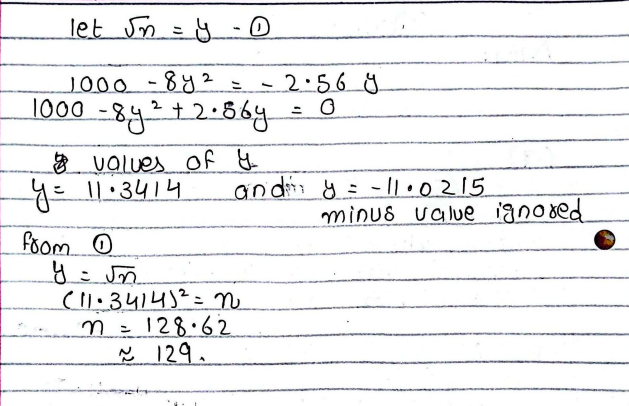 let √n = y - ①
1000 - 8y² = - 2.56 y
1000 - 8y² + 2.56y = 0
values of y
y = 11.3414 and y = -11.0215
minus value ignored
from ①
y = √n
(11.3414)² = n
n = 128.62
≈ 129.